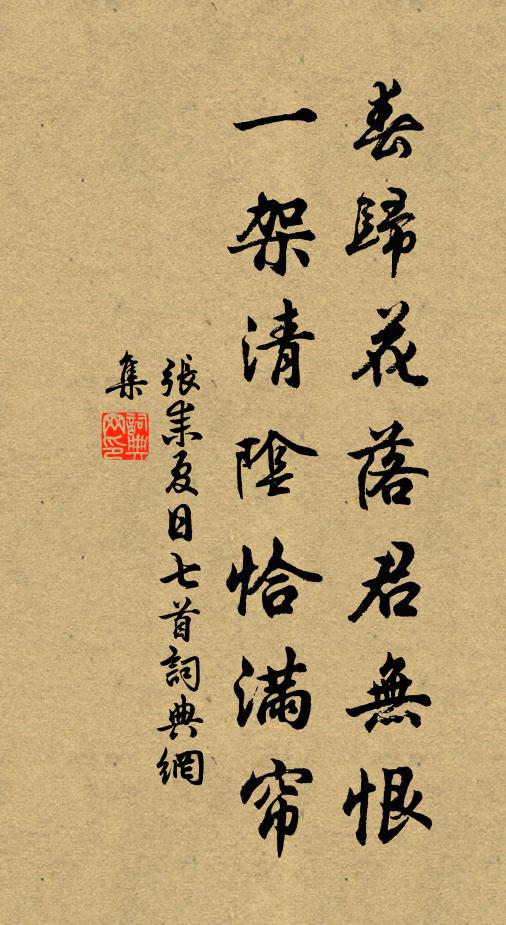 春歸花落君無恨
一架清陰恰滿帘
張耒夏日七首詞典網
集
詞典網印